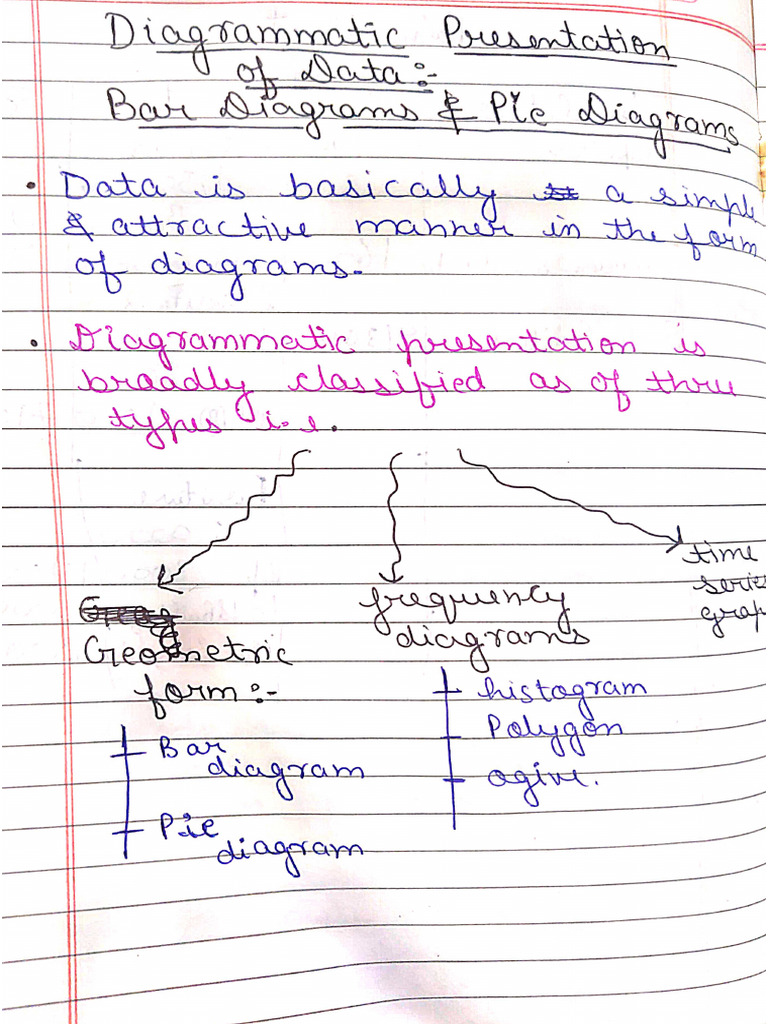 Diagrammatic Presentation
of Data:-
Bar Diagrams & Pie Diagrams
• Data is basically a simpl
& attractive manner in the form
of diagrams.
• Diagrammatic presentation is
braadly classified as of thru
types i.e.
time
series
grap
frequency
diagrams
Geometric
form:-
histogram
Polygon
ogive.
Bar
diagram
Pie
diagram